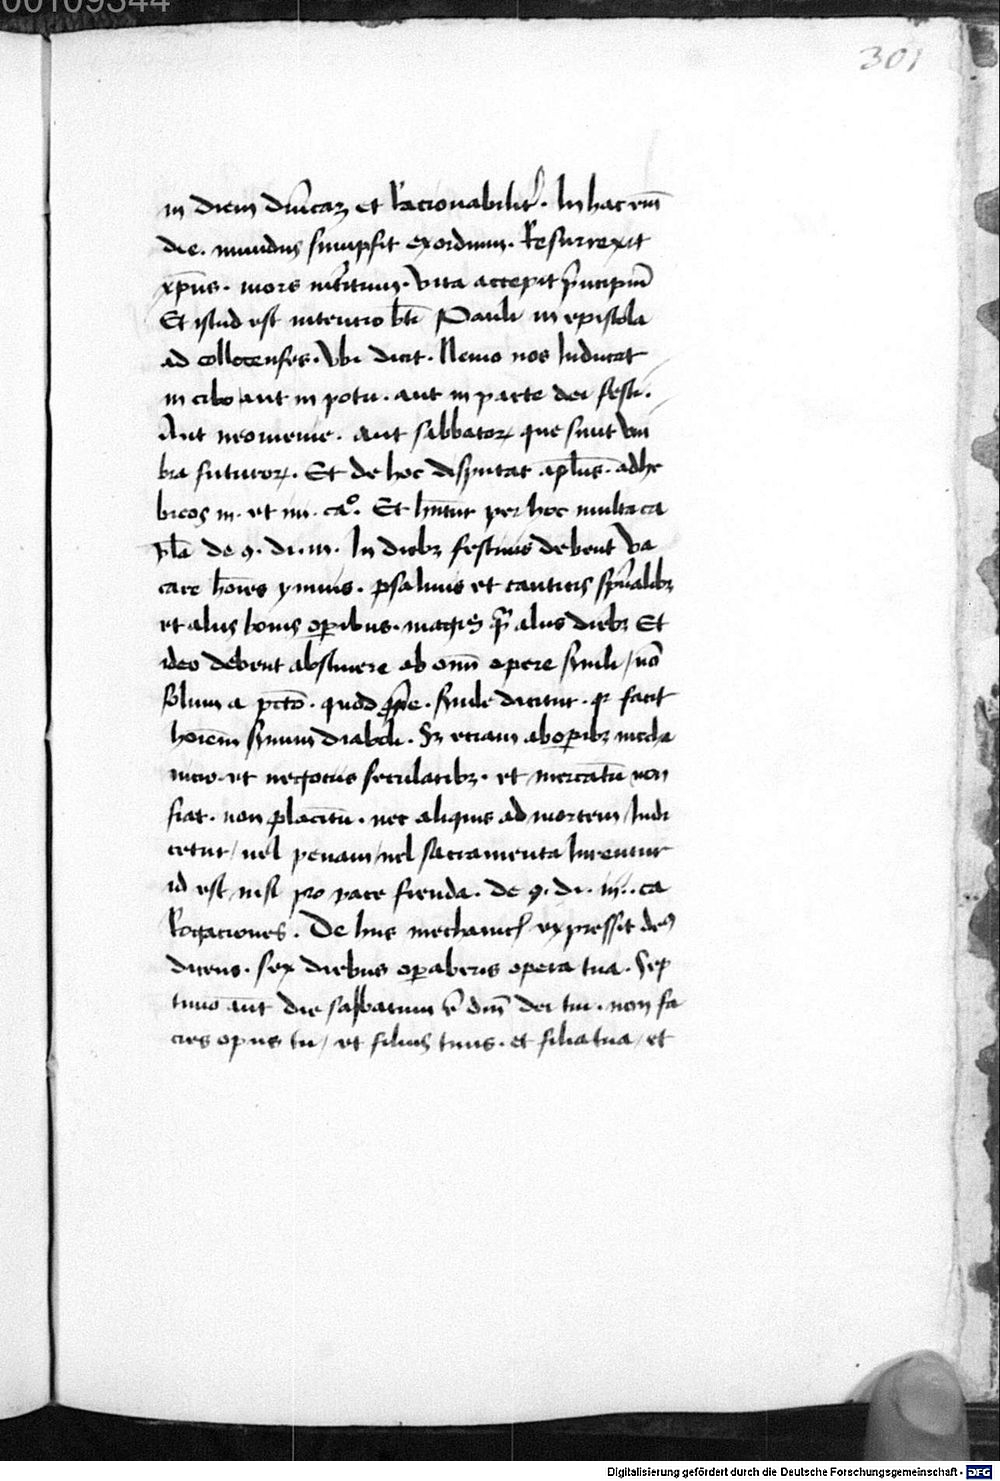 00109344
301
in diem dn̄icaꝫ et Racionabilit᷑. In hac em̄
die. mundus sumpsit exordium. Resurrexit
xp̄us. mors int̄itum. Vita accepit p̄ncipiū
Et istud est intentio bt̄i Pauli in epistola
ad collocenses. Vbi dicit. Nemo nos Iudicet
in cibo aut in potu. aut in parte dei festi.
Aut neomenie. aut sabbatoꝝ que sunt vm
bra futuroꝝ. Et de hoc disputat apl̄us. ad he
breos iii. et iiii. ca°. Et hn̄tur per hoc multa ca
pl̄a de ꝯ. di. iii. In diebꝫ festiuis debent va
care hoīes ymnis. psalmis et canticis sp̄ualibꝫ
et aliis bonis oꝑibus. magis q̄ aliis diebꝫ Et
ideo debent abstinere ab omī opere s̄uili / nō
solum a pctō. quod ꝓpe. s̄uile dicitur. qꝛ facit
hoīem s̄uum diaboli. Sꝫ etiam ab oꝑibꝫ mecha
nicis. et negociis secularibꝫ. et mercatū non
fiat. non placitū. nec aliquis ad mortem / Iudi
cetur / uel penam / uel sacramenta Iurentur
id est nisi pro pace fienda. De ꝯ. di. iii. ca
Rogaciones. De hiis mechanicis expressit deꝰ
dicens. sex diebus oꝑaberis opera tua. Sep
timo aūt die sabbatum ē dn̄i dei tui. non fa
cies opus tu / et filius tuus. et filia tua / et
Digitalisierung gefördert durch die Deutsche Forschungsgemeinschaft - DFG